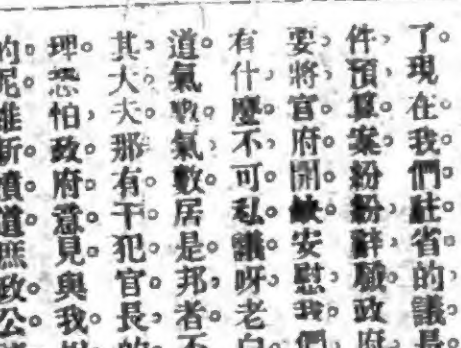 了。現在。我們。駐。省的。議。長。
件、預。算。案。紛紛、辭、職。政府、
要、將、官。府。開。缺。安慰、我。們、
有什、麼。不、可。私。議。呀。老
道。氣數。氣、數。居是。邦。者。不
其、大。夫。那有。干。犯。官。長。的。
理。恐。怕、政。府。意。見。與我。
的。呢。維新。憤。道。庶政。公。